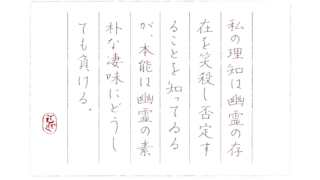 私の理知は幽霊の存
在を笑殺し否定す
ることを知ってゐる
が、本能は幽霊の素
朴な凄味にどうし
ても負ける。